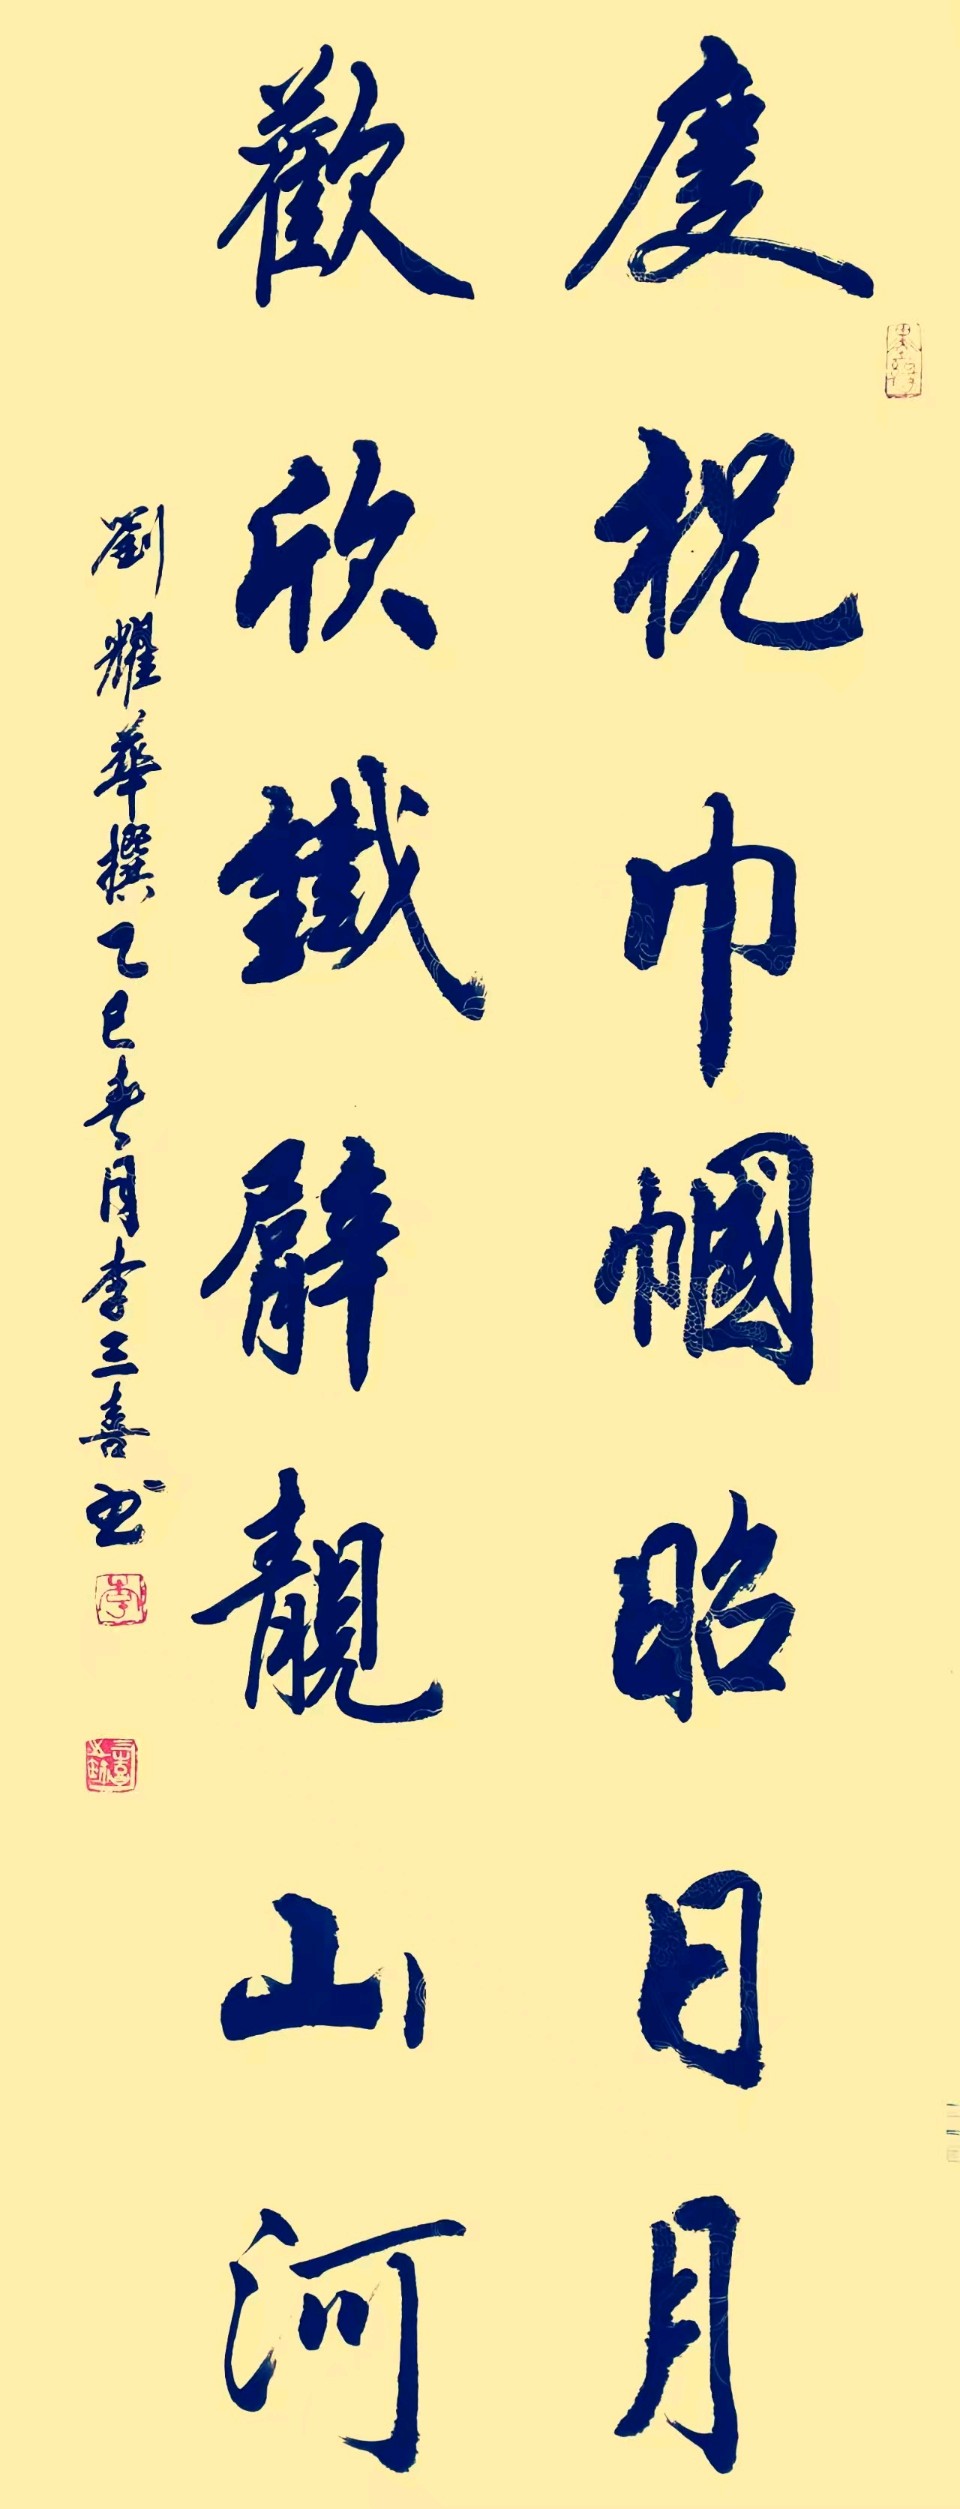 度祝巾幗昭日月
歡欣鐵臂靚山河
劉耀華撰乙巳春月李三喜书